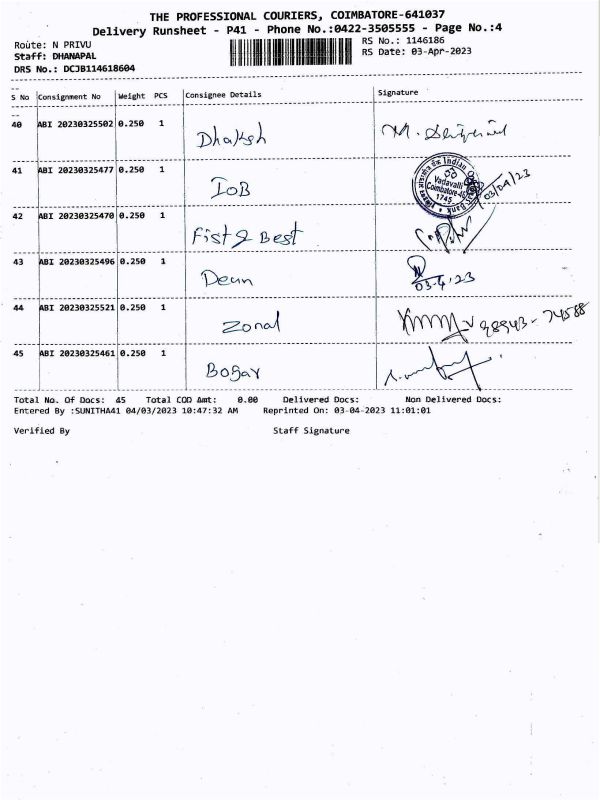 THE PROFESSIONAL COURIERS, COIMBATORE-641037
Delivery Runsheet - P41 - Phone No.:0422-3505555 - Page No.:4
Route: N PRIVU
RS No.: 1146186
Staff: DHANAPAL
RS Date: 03-Apr-2023
DRS No.: DCJB114618604
S No Consignment No Weight PCS Consignee Details Signature
40 ABI 20230325502 0.250 1 Dhaksh M.
41 ABI 20230325477 0.250 1 IOB
Indian Overseas Bank
Vadavalli
Coimbatore-
1745
03/04/23
42 ABI 20230325470 0.250 1 Fist & Best
43 ABI 20230325496 0.250 1 Dean
03.4.23
44 ABI 20230325521 0.250 1 Zonal 98943-74588
45 ABI 20230325461 0.250 1 Bogar
Total No. Of Docs: 45 Total COD Amt: 0.00 Delivered Docs: Non Delivered Docs:
Entered By :SUNITHA41 04/03/2023 10:47:32 AM Reprinted On: 03-04-2023 11:01:01
Verified By Staff Signature